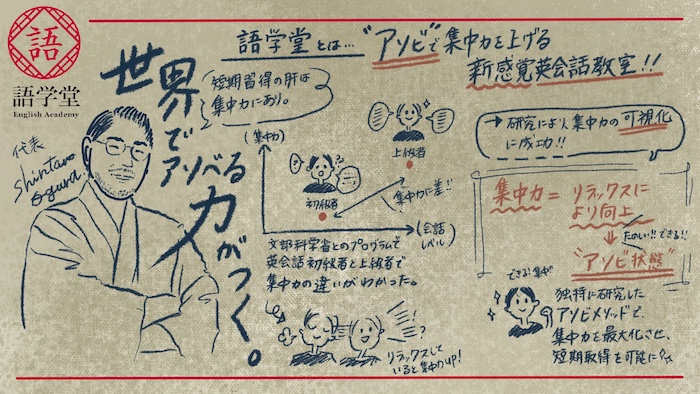 語
語学堂
English Academy
代表
Shintaro
Ogura
世界
で
アソべる
力が
つく。
語学堂とは…"アソビ"で集中力を上げる
新感覚英会話教室!!
短期習得の肝は
集中力にあり。
(集中力)
上級者
初級者
集中力に差!!
(会話
レベル)
文部科学省とのプログラムで
英会話初級者と上級者で
集中力の違いがわかった。
リラックスして
いると集中力up!
→研究により集中力の可視化
に成功!!
集中力=リラックスに
より向上
たのしい!!できる!!
"アソビ状態"
できる!集中!
独特に研究した
アソビメソッドで、
集中力を最大化させ、
短期取得を可能に